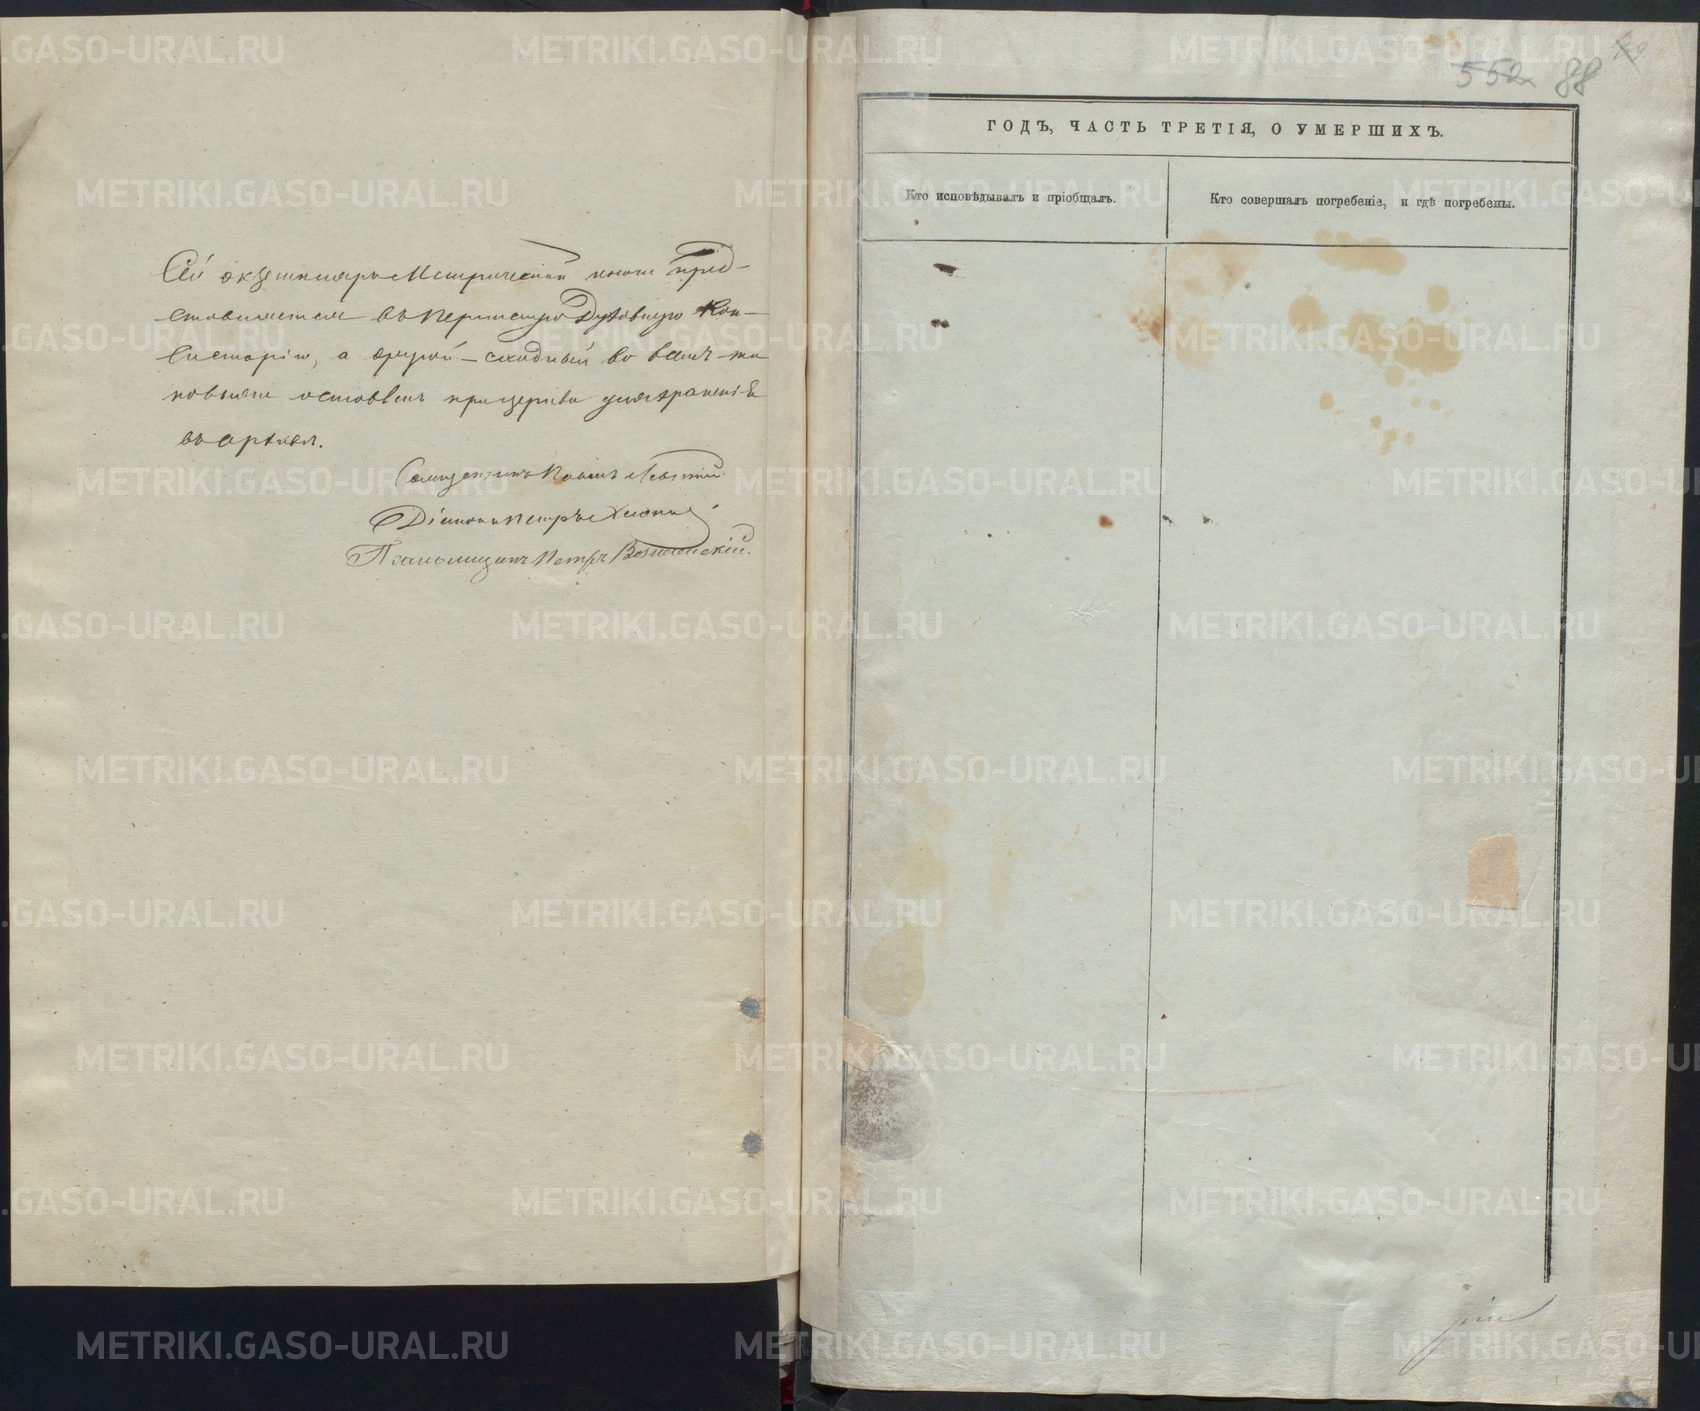 Сей экземпляръ Метрической книги пред-
ставляется въ Пермскую Духовную Кон-
систорію, а другой - сходный во всемъ
оставленъ при церкви для храненія
въ архивѣ.
Священникъ Павелъ
Діаконъ Петръ
Псаломщикъ Петръ Вознесенскій.
552 88
ГОДЪ, ЧАСТЬ ТРЕТІЯ, О УМЕРШИХЪ.
Кто исповѣдывалъ и пріобщалъ.
Кто совершалъ погребеніе, и гдѣ погребены.
METRIKI.GASO-URAL.RU